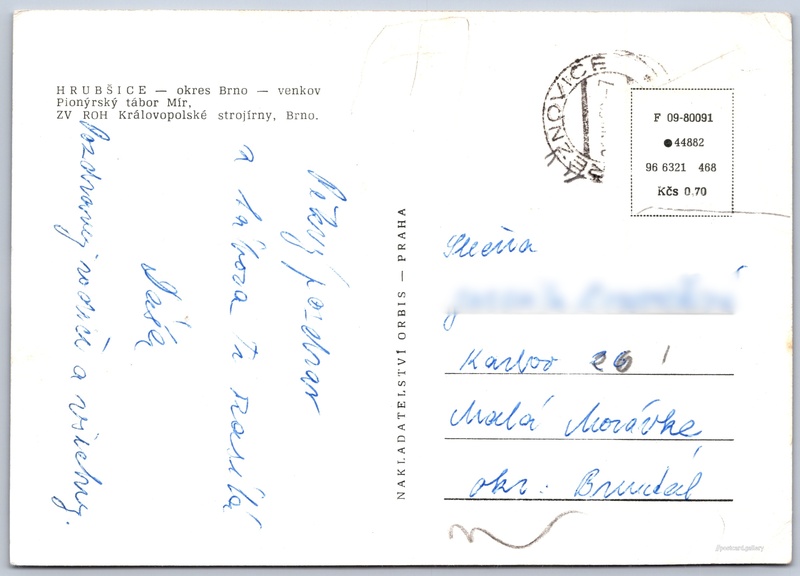 HRUBŠICE — okres Brno — venkov
Pionýrský tábor Mír,
ZV ROH Královopolské strojírny, Brno.
Hezký pozdrav
z tábora Ti zasílá
Dáša
Pozdravuj rodiče a všechny.
NAKLADATELSTVÍ ORBIS — PRAHA
EZNOVICE
F 09-80091
44882
96 6321 468
Kčs 0.70
Slečna
Karlov
Malá Morávka
okr. Bruntál
@postcard.gallery